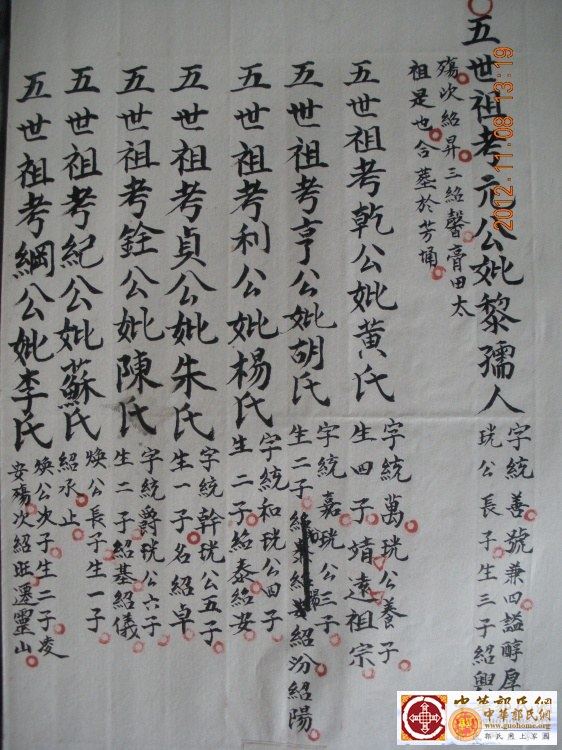 五世祖考元公妣黎孺人
字統善號兼四謚醇厚
珖公長子生三子紹興
殤次紹昇三紹馨膏田太
祖是也合墓於芳埇
五世祖考乾公妣黃氏
字統萬珖公養子
生四子靖遠祖宗
五世祖考亨公妣胡氏
字統嘉珖公三子
生二子紹汾紹陽
五世祖考利公妣楊氏
字統和珖公四子
生二子紹泰紹安
五世祖考貞公妣朱氏
字統幹珖公五子
生一子名紹卓
五世祖考銓公妣陳氏
字統爵珖公六子
生二子紹基紹儀
五世祖考紀公妣蘇氏
煥公長子生一子
紹承止
五世祖考綱公妣李氏
煥公次子生二子凌
安殤次紹旺遷靈山
2012.11.08 13:19
中華郭氏網
中華郭氏網
www.guohome.org
郭氏网上家園